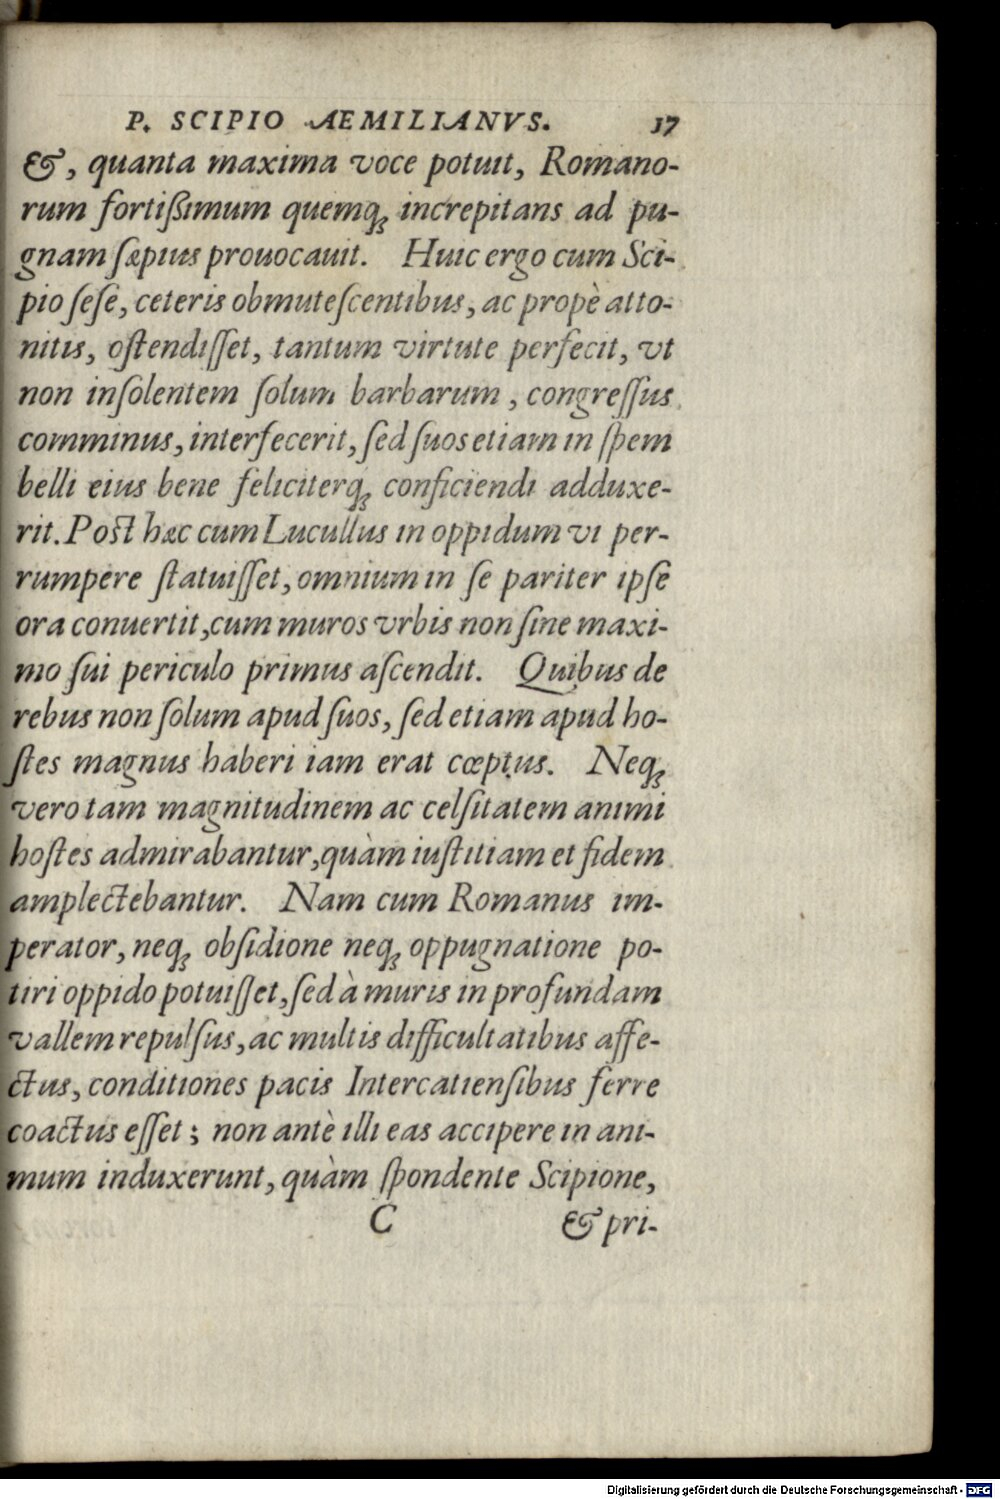 P. SCIPIO AEMILIANVS. 17
&, quanta maxima voce potuit, Romano-
rum fortißimum quemq; increpitans ad pu-
gnam sæpius prouocauit. Huic ergo cum Sci-
pio sese, ceteris obmutescentibus, ac propè atto-
nitis, ostendisset, tantum virtute perfecit, vt
non insolentem solum barbarum, congressus
comminus, interfecerit, sed suos etiam in spem
belli eius bene feliciterq; conficiendi adduxe-
rit. Post hæc cum Lucullus in oppidum vi per-
rumpere statuisset, omnium in se pariter ipse
ora conuertit, cum muros vrbis non sine maxi-
mo sui periculo primus ascendit. Quibus de
rebus non solum apud suos, sed etiam apud ho-
stes magnus haberi iam erat cœptus. Neq;
vero tam magnitudinem ac celsitatem animi
hostes admirabantur, quàm iustitiam et fidem
amplectebantur. Nam cum Romanus im-
perator, neq; obsidione neq; oppugnatione po-
tiri oppido potuisset, sed à muris in profundam
vallem repulsus, ac multis difficultatibus affe-
ctus, conditiones pacis Intercatiensibus ferre
coactus esset; non antè illi eas accipere in ani-
mum induxerunt, quàm spondente Scipione,
C & pri-
Digitalisierung gefördert durch die Deutsche Forschungsgemeinschaft - DFG